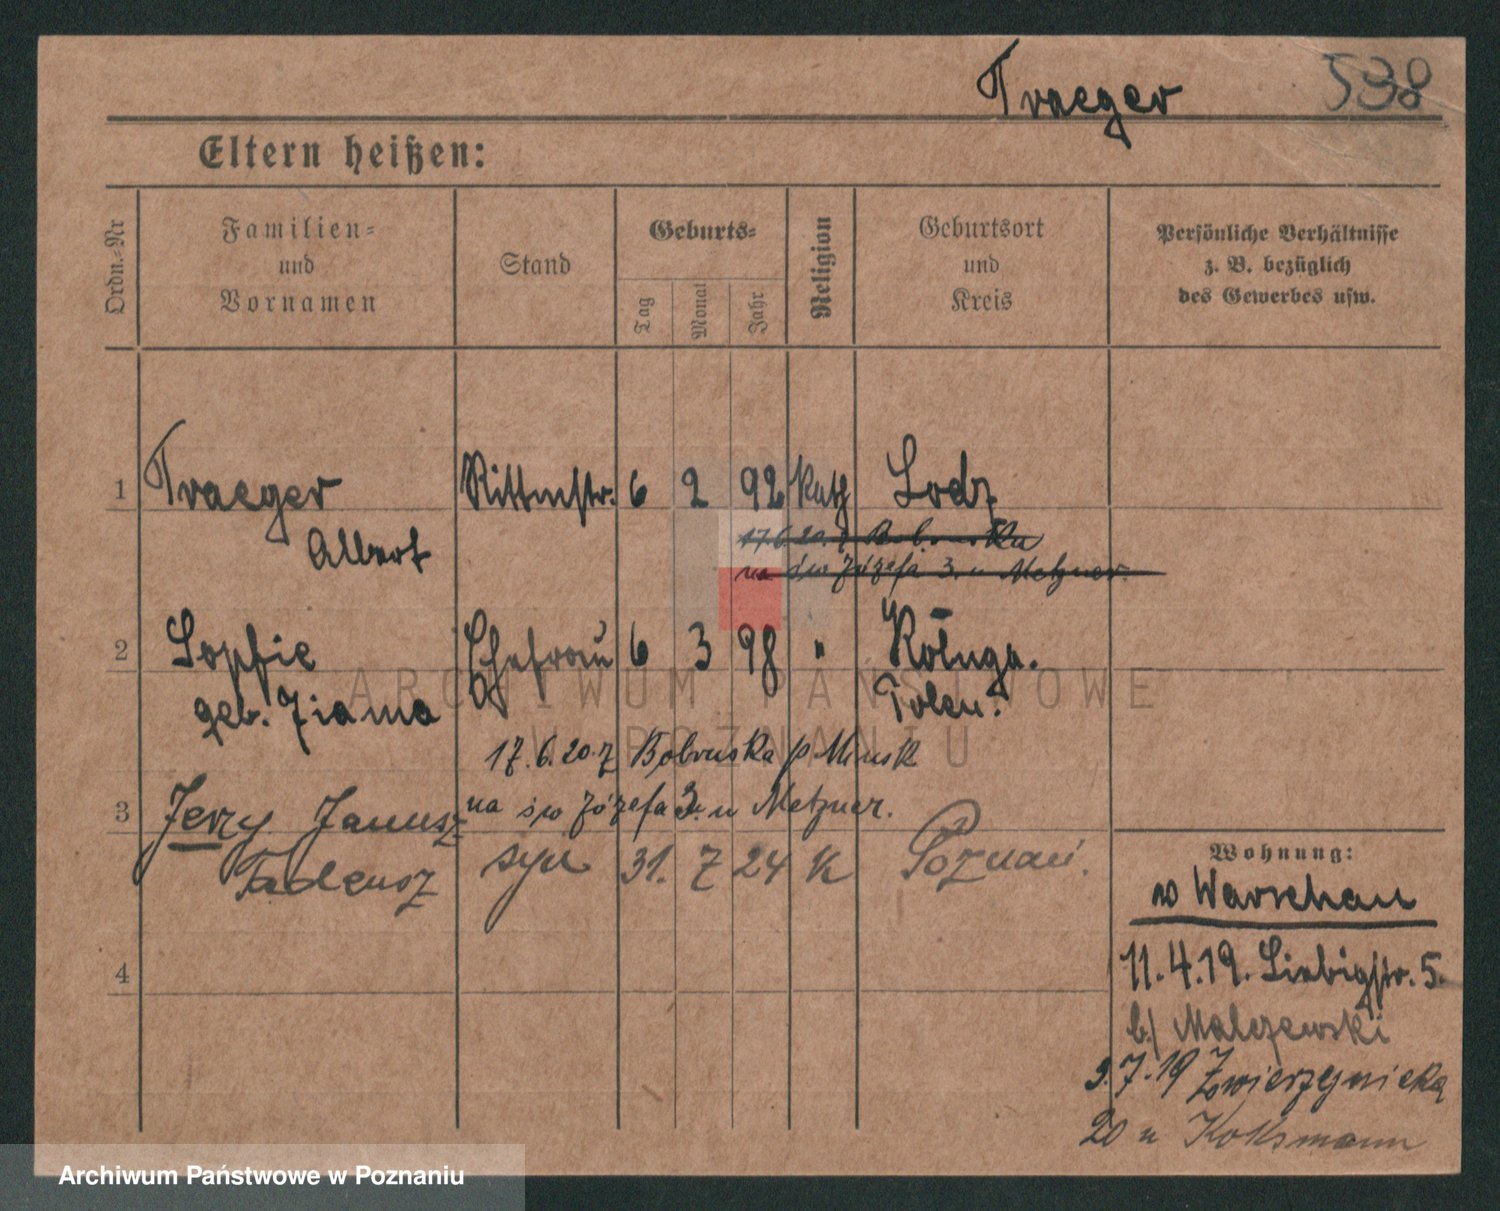 Traeger 538
Eltern heißen:
Ordn.-Nr
Familien-
und
Vornamen
Stand
Geburts-
Tag
Monat
Jahr
Religion
Geburtsort
und
Kreis
Persönliche Verhältnisse
z. B. bezüglich
des Gewerbes usw.
1 Traeger Rittmstr. 6 2 92 Kath Lodz
Albert
17.6.20. z Bobruska
na św Józefa 3. u Metzner.
2 Sophie Ehefrau 6 3 98 "
geb. Ziama Polen.
17.6.20. z Bobruska p Minsk
na św Józefa 3. u Metzner.
3 Jerzy Janusz
Tadeusz syn 31. 7 24 K Poznań.
4
Wohnung:
Warschau
11.4.19. Liebigstr. 5.
b/ Malczewski
3.7.19 Zwierzyniecka
20 u Koksmann
ARCHIWUM PAŃSTWOWE
W POZNANIU
Archiwum Państwowe w Poznaniu